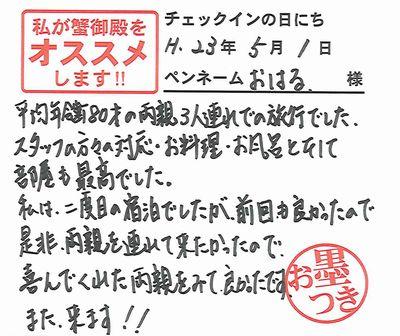 私が蟹御殿を
オススメ
します!!
チェックインの日にち
H.23年5月1日
ペンネーム おはる 様
平均年齢80才の両親、3人連れでの旅行でした。
スタッフの方々の対応・お料理・お風呂とそして
部屋も最高でした。
私は、二度目の宿泊でしたが、前回も良かったので
是非、両親を連れて来たかったので
喜んでくれた両親をみて、良かったです。
また、来ます!!
お墨つき